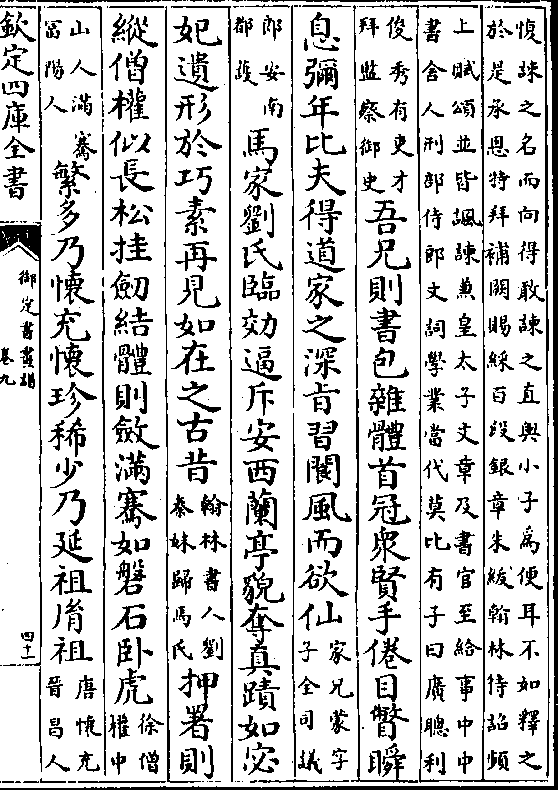 愎諫之名而向得敢諫之直與小子為便耳不如釋之
於是承恩特拜補闕賜綵百段銀章朱紱翰林待詔頻
上賦頌並皆諷諫兼皇太子文章及書官至給事中中
書舍人刑部侍郎文詞學業當代莫比有子曰廣聰利
俊秀有吏才
拜監察御史
吾兄則書包雜體首冠衆賢手倦目瞥瞬
息彌年比夫得道家之深旨習閬風而欲仙
家兄蒙字
子全司議
郎安南
都護
馬家劉氏臨効逼斥安西蘭亭貌奪真蹟如宓
妃遺形於巧素再見如在之古昔
翰林書人劉
秦妹歸馬氏
押署則
縱僧權似長松挂劒結體則斂滿騫如磐石臥虎
徐僧
權中
山人滿騫
冨陽人
繁多乃懷充懷珍稀少乃延祖胤祖
唐懷充
晉昌人
欽定四庫全書
御定書畫譜
卷九
四十一